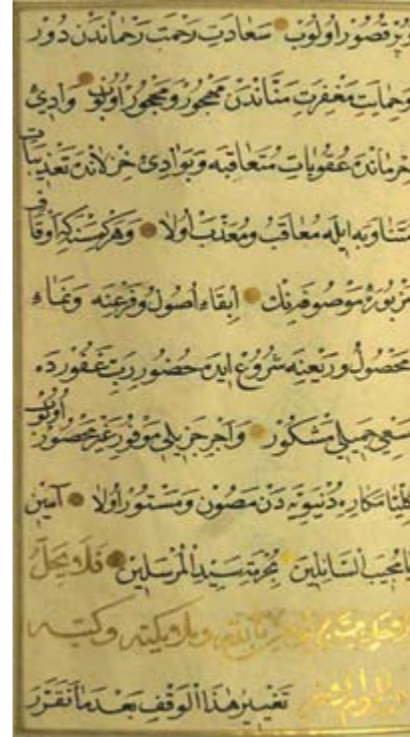 وبرقصور اولوب سعادت رحمت رحماندن دور
وحمایت مغفرت مناندن مهجور ومحجور اولوب وادئ
حرماندن عقوبات متعاقبه وبوادئ خزلاندن تعذیبات
متناوبه ایله معاقب ومعذب اولا وهر کسنه که اوقاف
مزبوره موصوفه‌نك ابقاء اصول وفرعنه ونماء
محصول وریعنه شروع ایده حضور رب غفورده
سعی جمیلی مشکور واجر جزیلی موفور غیر محصور اولوب
مکاره دنیویه‌دن مصون ومستور اولا آمین
یا مجیب السائلین بحرمة سید المرسلین فلا یحل
بالله وملائکته وکتبه
تغییر هذا الوقف بعد ما تقرر